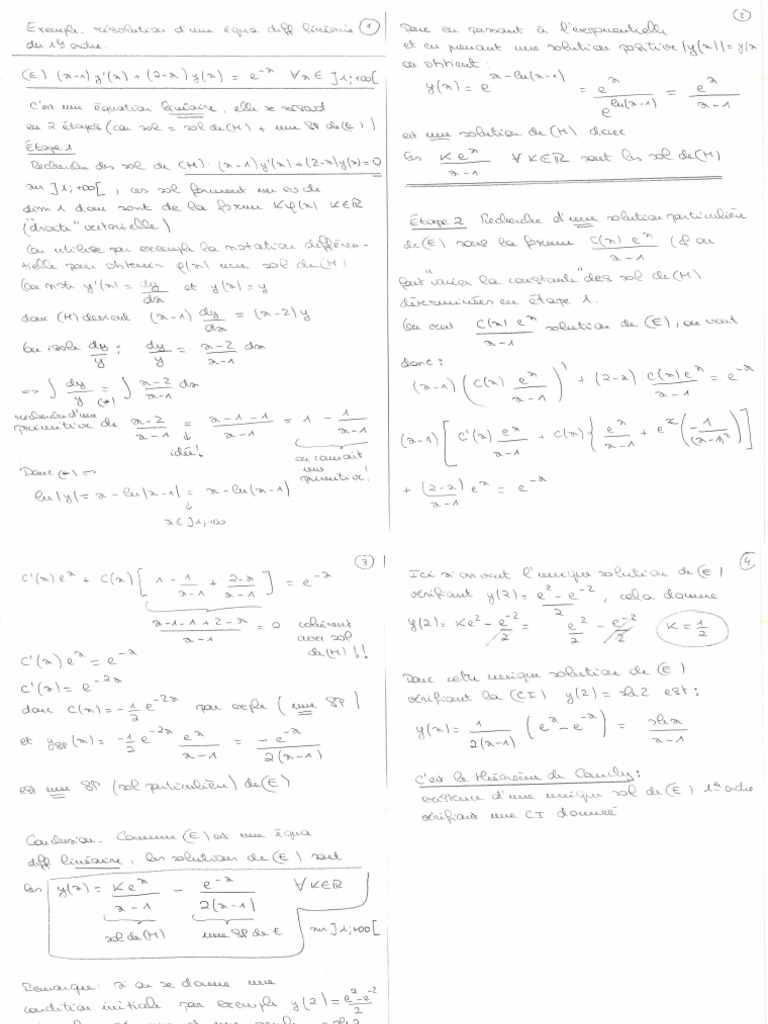 Exemple. résolution d'une équa diff linéaire
du 1er ordre.
1
(E) (x-1) y'(x) + (2-x) y(x) = e^{-x} ∀x ∈ ]1;+∞[
C'est une équation linéaire, elle se résout
en 2 étapes (car sol = sol de (H) + une SP de (E))
Étape 1
Recherche des sol de (H): (x-1)y'(x)+(2-x)y(x)=0
sur ]1;+∞[, ces sol forment un ev de
dim 1 donc sont de la forme Kφ(x) K∈ℝ
("droite" vectorielle)
On utilise par exemple la notation différen-
tielle pour obtenir φ(x) une sol de (H:
On note y'(x) = dy/dx et y(x) = y
donc (H) devient (x-1) dy/dx = (x-2)y
On isole dy/y : dy/y = x-2/x-1 dx
=> ∫ dy/y = (*) ∫ x-2/x-1 dx
recherche d'une
primitive de x-2/x-1 = x-1-1/x-1 = 1 - 1/x-1
idée!
on connait
une
primitive!
Donc (*) =>
ln|y| = x - ln|x-1| = x - ln(x-1)
x∈]1,+∞
2
Donc en passant à l'exponentielle
et en prenant une solution positive |y(x)| = y(x
on obtient:
y(x) = e^{x-ln(x-1)} = e^x/e^{ln(x-1)} = e^x/x-1
est une solution de (H) donc
les Ke^x/x-1 ∀K∈ℝ sont les sol de (H)
Étape 2 Recherche d'une solution particulière
de (E) sous la forme C(x) e^x/x-1 (& on
fait "varier la constante" des sol de (H)
déterminées en étape 1.
On veut C(x) e^x/x-1 solution de (E), on veut
donc:
(x-1) (C(x) e^x/x-1)' + (2-x) C(x) e^x/x-1 = e^{-x}
(x-1) [C'(x) e^x/x-1 + C(x) { e^x/x-1 + e^x (-1/(x-1)^2)]
+ (2-x)/x-1 e^x = e^{-x}
3
C'(x) e^x + C(x) [1 - 1/x-1 + 2-x/x-1] = e^{-x}
x-1-1+2-x/x-1 = 0 cohérent
avec sol
de (H) !!
C'(x) e^x = e^{-x}
C'(x) = e^{-2x}
donc C(x) = -1/2 e^{-2x} par exple (une SP)
et y_{SP}(x) = -1/2 e^{-2x} e^x/x-1 = -e^{-x}/2(x-1)
est une SP (sol particulière) de (E)
Conclusion. Comme (E) est une équa
diff linéaire, les solutions de (E) sont
les y(x) = Ke^x/x-1 - e^{-x}/2(x-1) ∀K∈ℝ
sol de (H) une SP de E sur ]1,+∞[
Remarque: si on se donne une
condition initiale par exemple y(2) = e^2-e^{-2}/2
4
Ici si on veut l'unique solution de (E)
vérifiant y(2) = e^2 - e^{-2}/2, cela donne
y(2) = Ke^2 - e^{-2}/2 = e^2/2 - e^{-2}/2 K = 1/2
Donc cette unique solution de (E)
vérifiant la (CI) y(2) = sh2 est:
y(x) = 1/2(x-1) (e^x - e^{-x}) = shx/x-1
C'est le théorème de Cauchy:
existence d'une unique sol de (E) 1er ordre
vérifiant une CI donnée